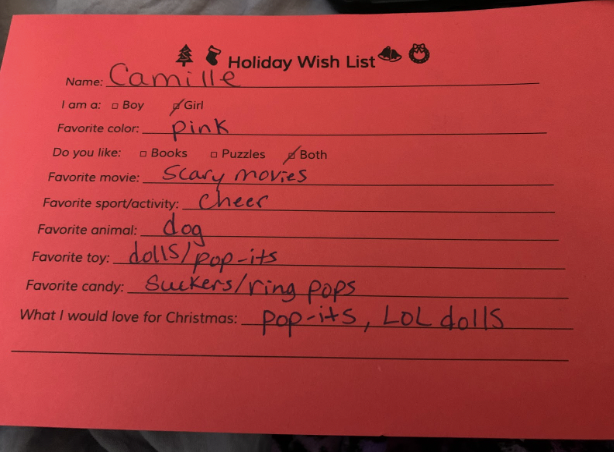 Holiday Wish List
Name: Camille
I am a: □ Boy ☑ Girl
Favorite color: pink
Do you like: □ Books □ Puzzles ☑ Both
Favorite movie: scary movies
Favorite sport/activity: cheer
Favorite animal: dog
Favorite toy: dolls/pop-its
Favorite candy: suckers/ring pops
What I would love for Christmas: pop-its, LOL dolls